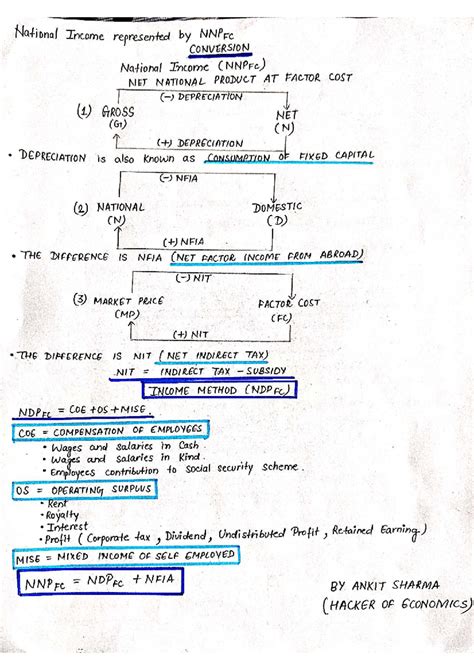 National Income represented by NNPFC
CONVERSION
National Income (NNPFC)
NET NATIONAL PRODUCT AT FACTOR COST
(-) DEPRECIATION
(1) GROSS
(G)
NET
(N)
(+) DEPRECIATION
• DEPRECIATION is also known as CONSUMPTION OF FIXED CAPITAL
(-) NFIA
(2) NATIONAL
(N)
DOMESTIC
(D)
(+) NFIA
• THE DIFFERENCE IS NFIA (NET FACTOR INCOME FROM ABROAD)
(-) NIT
(3) MARKET PRICE
(MP)
FACTOR COST
(FC)
(+) NIT
• THE DIFFERENCE IS NIT (NET INDIRECT TAX)
NIT = INDIRECT TAX - SUBSIDY
INCOME METHOD (NDPFC)
NDPFC = COE + OS + MISE.
COE = COMPENSATION OF EMPLOYEES
• Wages and salaries in Cash.
• Wages and salaries in Kind.
• Employees contribution to social security scheme.
OS = OPERATING SURPLUS
• Rent
• Royalty
• Interest
• Profit (Corporate tax, Dividend, Undistributed Profit, Retained Earning.)
MISE = MIXED INCOME OF SELF EMPLOYED
NNPFC = NDPFC + NFIA
BY ANKIT SHARMA
(HACKER OF ECONOMICS)